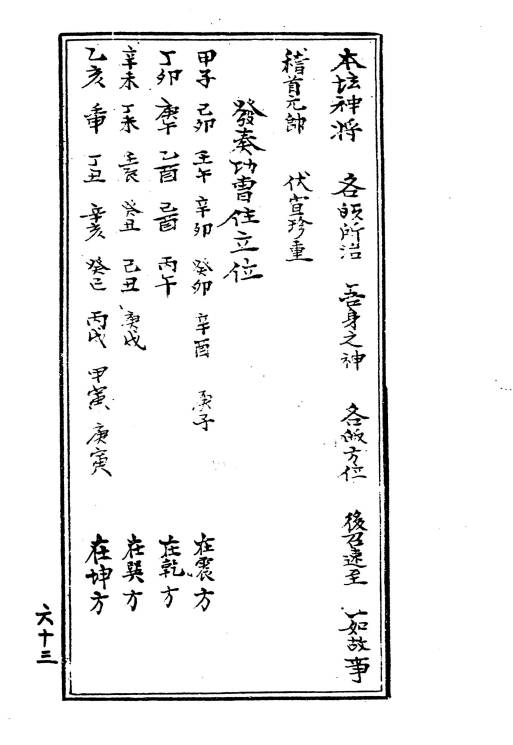 本坛神将 各皈所治 吾身之神 各皈方位 後召速至 一如故事
稽首元帥 伏宣珍重
發奏功曹住立位
甲子 己卯 壬午 辛卯 癸卯 辛酉 子 在震方
丁卯 庚午 乙酉 己酉 丙午 在乾方
辛未 丁未 壬辰 癸丑 己丑 庚戌 在巽方
乙亥 丁丑 辛亥 癸巳 丙戌 甲寅 庚寅 在坤方
六十三